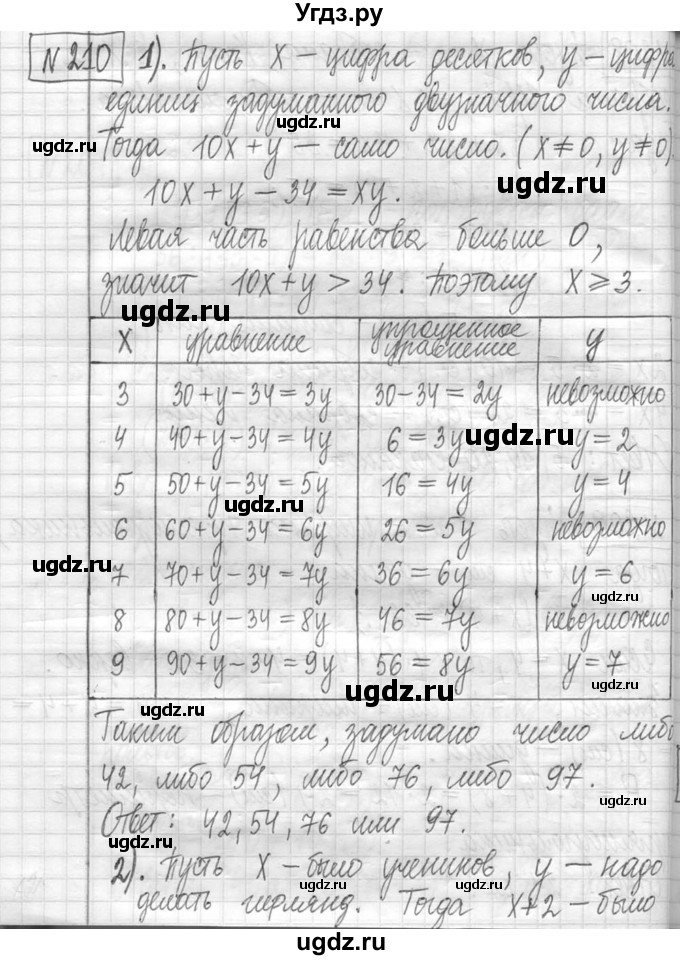 Угдз.ру
№210 1). Пусть x – цифра десятков, y – цифра
единиц задуманного двузначного числа.
ugdz.ru ugdz.ru
Тогда 10x + y – само число. (x ≠ 0, y ≠ 0)
ugdz.ru
10x + y – 34 = xy.
Левая часть равенства больше 0,
значит 10x + y > 34. Поэтому x ⩾ 3.
ugdz.ru
x уравнение упрощенное уравнение y
3 30 + y – 34 = 3y 30 – 34 = 2y невозможно
4 40 + y – 34 = 4y 6 = 3y y = 2
ugdz.ru
5 50 + y – 34 = 5y 16 = 4y y = 4
ugdz.ru
6 60 + y – 34 = 6y 26 = 5y невозможно
ugdz.ru
7 70 + y – 34 = 7y 36 = 6y y = 6
ugdz.ru
8 80 + y – 34 = 8y 46 = 7y невозможно
9 90 + y – 34 = 9y 56 = 8y y = 7
ugdz.ru ugdz.ru
ugdz.ru
Таким образом, задумано число либо
42, либо 54, либо 76, либо 97.
ugdz.ru
Ответ: 42, 54, 76 или 97.
ugdz.ru
2). Пусть x – было учеников, y – надо
делать гирлянд. Тогда x + 2 – было
ugdz.ru